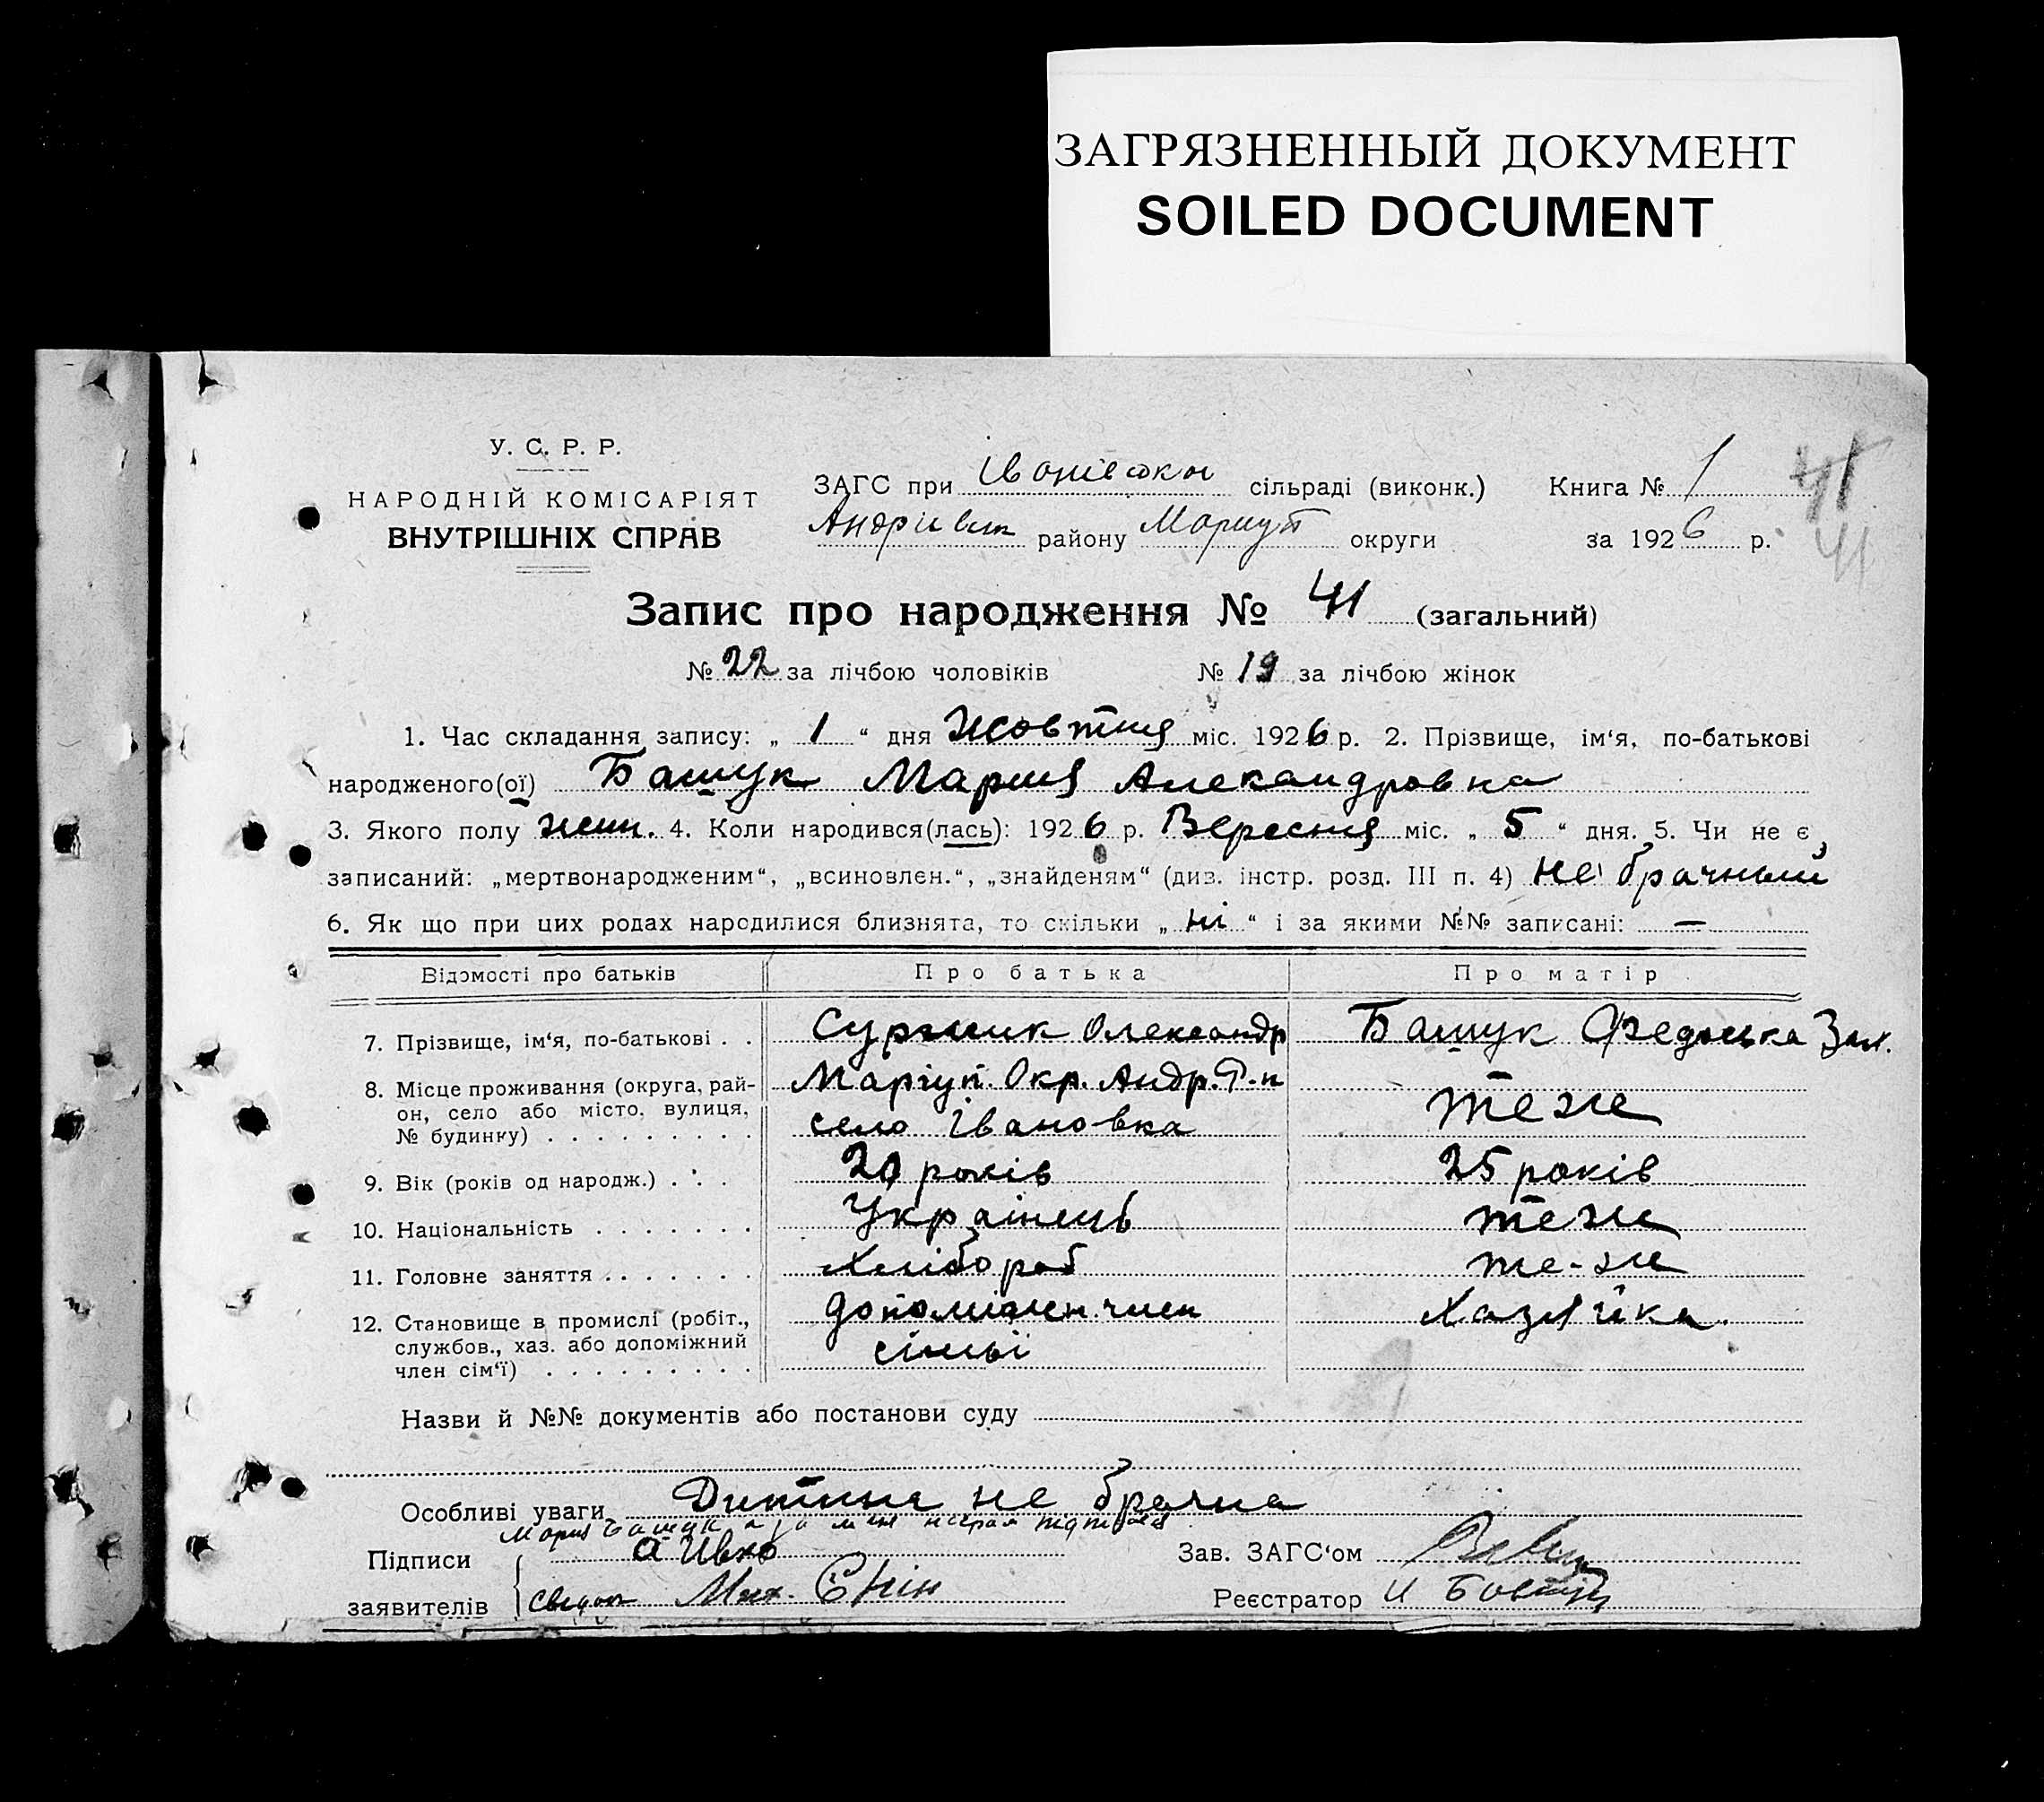 ЗАГРЯЗНЕННЫЙ ДОКУМЕНТ
SOILED DOCUMENT
У. С. Р. Р.
НАРОДНІЙ КОМІСАРІЯТ
ВНУТРІШНІХ СПРАВ
ЗАГС при сільраді (виконк.) Книга № 1
41
району Мариуп округи за 1926 р.
41
Запис про народження № 41 (загальний)
№ 22 за лічбою чоловіків № 19 за лічбою жінок
1. Час складання запису: „ 1 “ дня Жовтня міс. 1926 р. 2. Прізвище, ім‘я, по-батькові
народженого(ої) Башук Мария Александровна
3. Якого полу жин. 4. Коли народився(лась): 1926 р. Вересня міс. „ 5 “ дня. 5. Чи не є
записаний: „мертвонародженим“, „всиновлен.“, „знайденям“ (див. інстр. розд. III п. 4) не брачный
6. Як що при цих родах народилися близнята, то скільки „ ні “ і за якими №№ записані: —
Відомості про батьків Про батька Про матір
7. Прізвище, ім‘я, по-батькові . . Олександр Башук
8. Місце проживання (округа, рай- Маріуп. Окр. Андр. Р-н
он, село або місто, вулиця, село Івановка теже
№ будинку) . . . . . . . . .
9. Вік (років од народж.) . . . 20 років 25 років
10. Національність . . . . . . . Українець теже
11. Головне заняття . . . . . . . Хлібороб те-же
12. Становище в промислі (робіт., допоміжн. член Хазяйка.
службов., хаз. або допоміжний сімьі
член сім‘ї) . . . . . . . . .
Назви й №№ документів або постанови суду
Особливі уваги Дитина не брачна
Мария Башук а за
Підписи Зав. ЗАГС‘ом
заявителів Мих. Реєстратор И